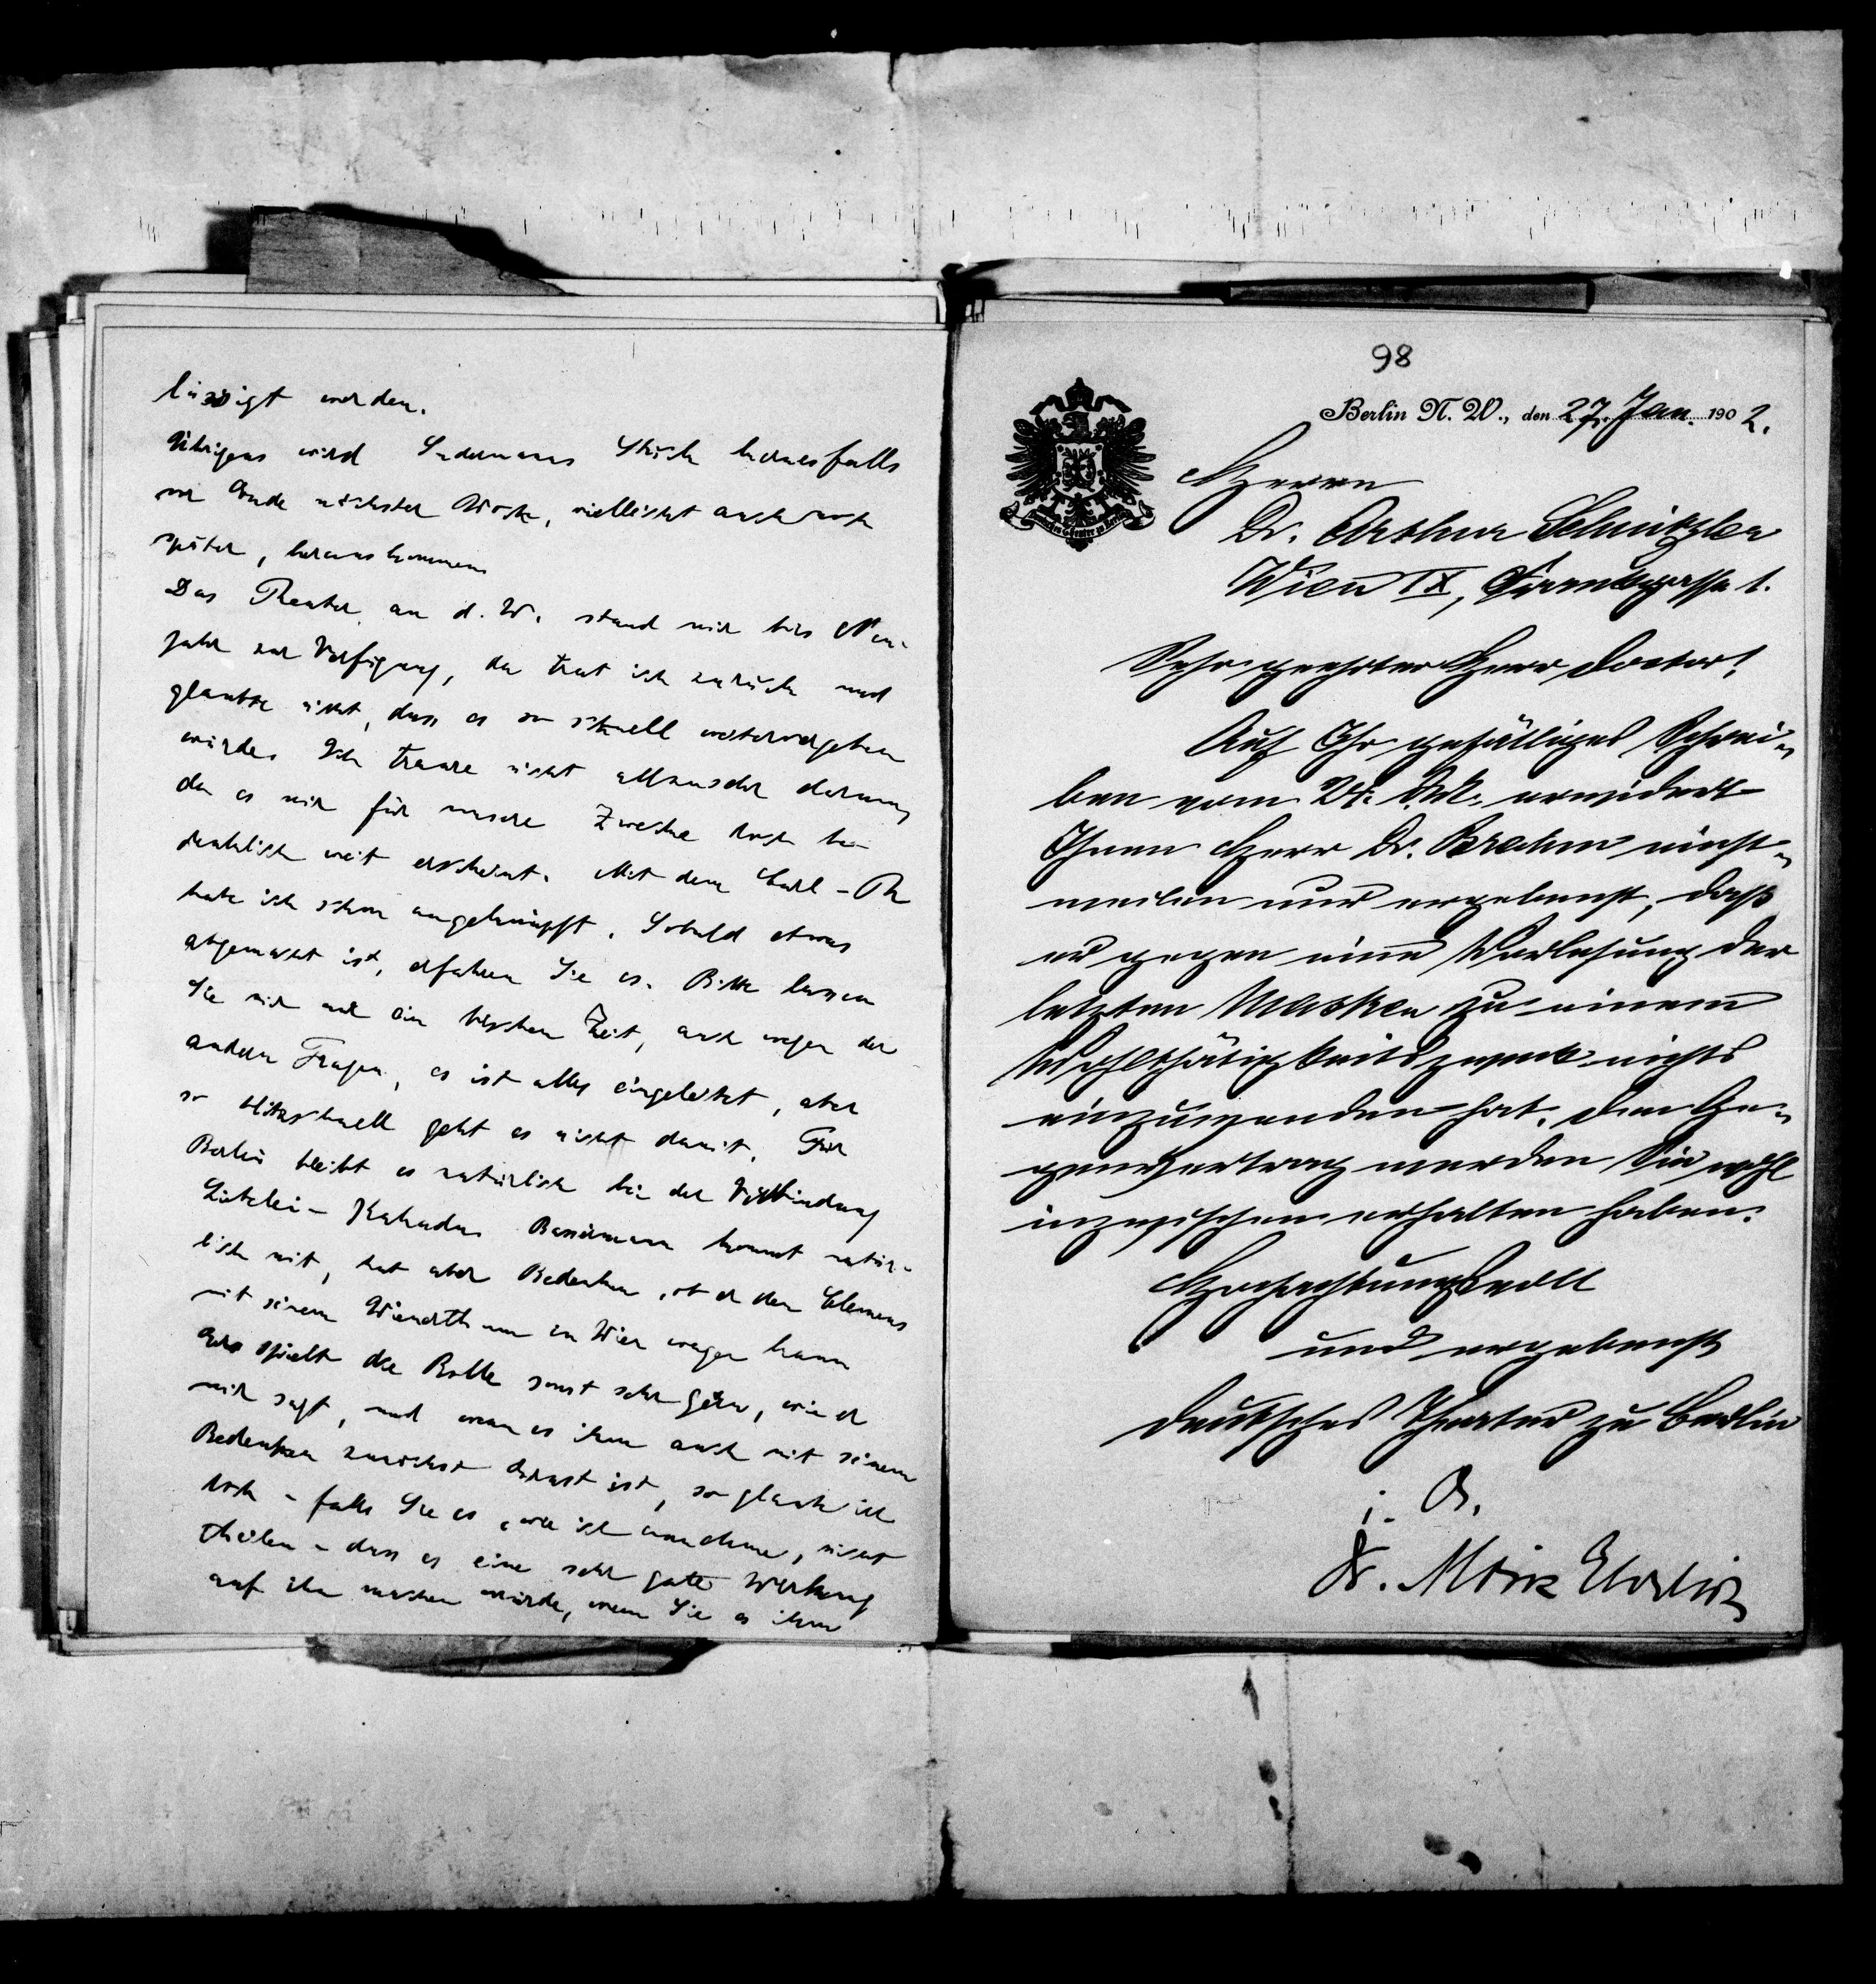 lässigt werden.
Übrigens wird Sudermanns Stück keinesfalls
vor Ende nächster Woche, vielleicht auch noch
später, herauskommen
Das Theater an d. W. stand mir bis Neu-
jahr zur Verfügung, da trat ich zurück und
glaubte nicht, dass es so schnell weitervergeben
würde. Ich traure nicht allzusehr darum,
da es mir für unsere Zwecke doch be-
denklich weit erscheint. Mit dem Carl-Th
habe ich schon angeknüpft. Sobald etwas
abgemacht ist, erfahren Sie es. Bitte lassen
Sie mir nur ein bisschen Zeit, auch wegen der
andern Fragen, es ist alles eingeleitet, aber
so blitzschnell geht es nicht damit. Für
Berlin bleibt es natürlich bei der Verbindung
Liebelei-Kakadu. Bassermann kommt natür-
lich mit, hat aber Bedenken, ob er den Clemens
mit seinem Wienerthum in Wien wagen kann
Er spielt die Rolle sonst sehr gern, wie er
mir sagt, und wenn es ihm auch mit seinem
Bedenken zunächst ernst ist, so glaube ich
doch - falls Sie es, wie ich annehme, nicht
theilen - dass es eine sehr gute Wirkung
auf ihn machen würde, wenn Sie es ihm
98
Berlin N. W., den 27. Jan. 1902.
Deutsches Theater zu Berlin
Herrn
Dr. Arthur Schnitzler
Wien IX, Frankgasse 1.
Sehr geehrter Herr Doctor!
Auf Ihr gefälliges Schrei-
ben vom 24. d. M. erwidert
Ihnen Herr Dr. Brahm einst-
weilen nur ergebenst, daß
er gegen eine Vorlesung der
letzten Masken zu einem
Wohlthätigkeitszweck nichts
einzuwenden hat. Den Ge-
genvertrag werden Sie wohl
inzwischen erhalten haben.
Hochachtungsvoll
und ergebenst
Deutsches Theater zu Berlin
i. A.
Dr. Moriz Ehrlich